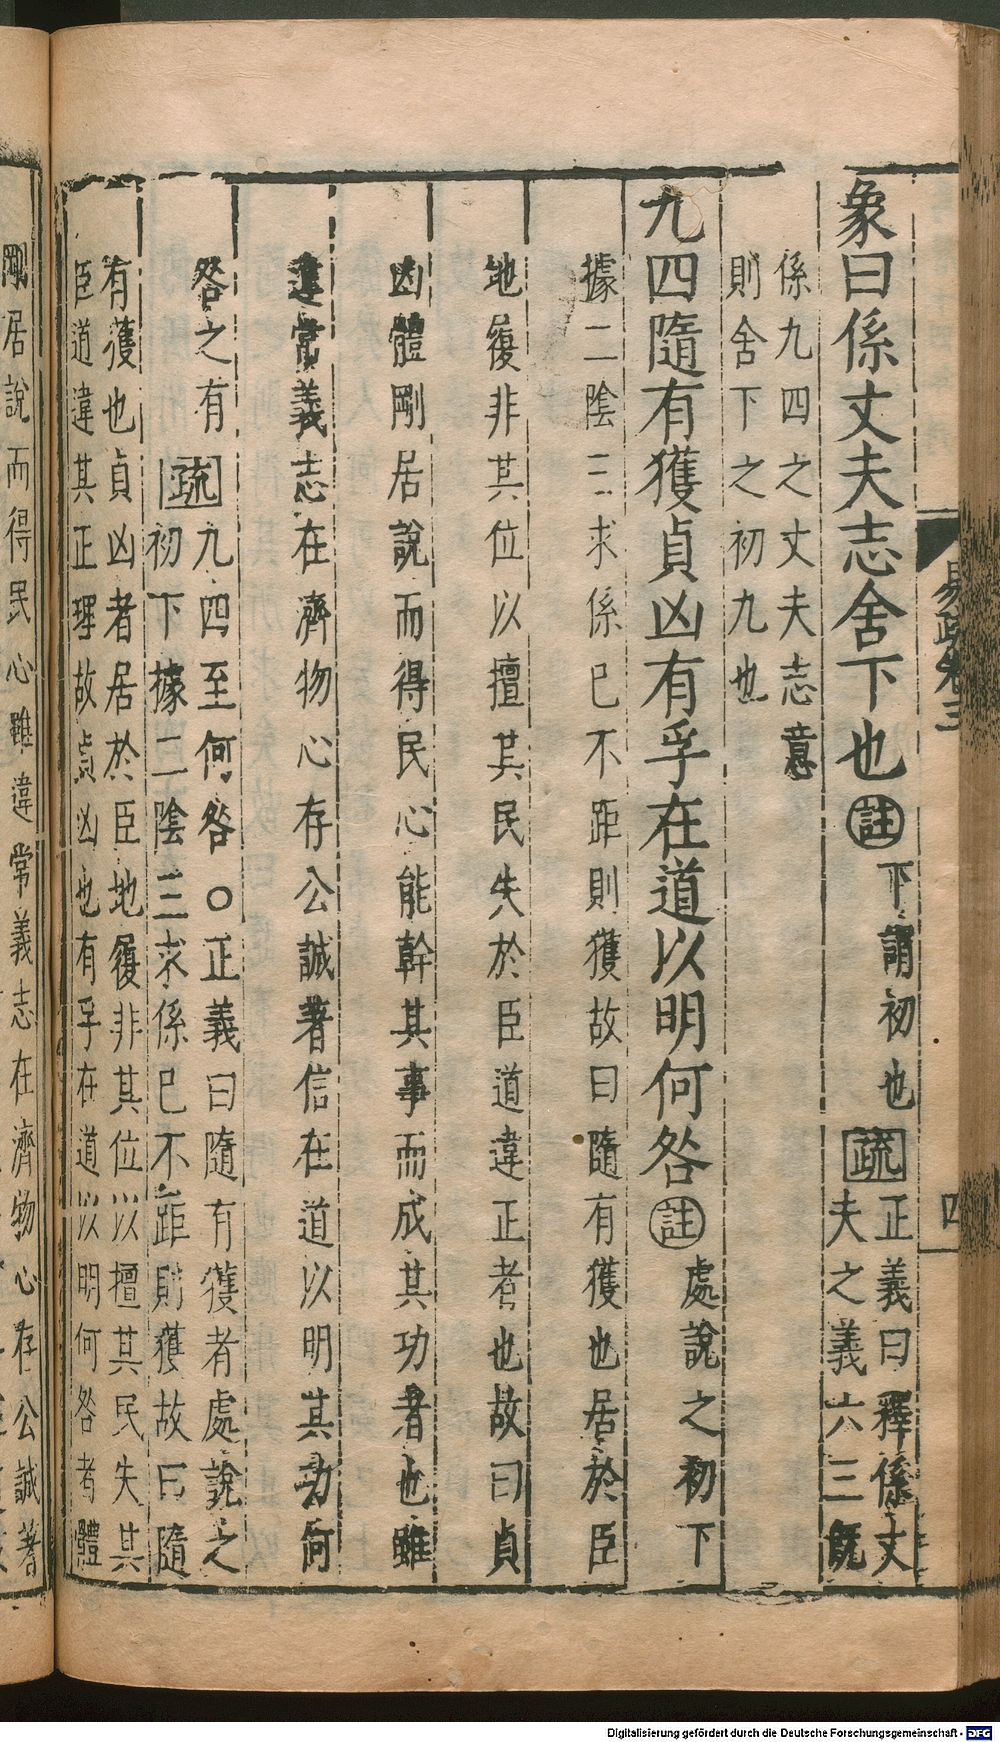 易疏卷三
四
象曰係丈夫志舍下也註下謂初也疏正義曰釋係丈
夫之義六三既
係九四之丈夫志意
則舍下之初九也
九四隨有獲貞凶有孚在道以明何咎註處說之初下
據二陰三求係已不距則獲故曰隨有獲也居於臣
地履非其位以擅其民失於臣道違正者也故曰貞
凶體剛居說而得民心能幹其事而成其功者也雖
違常義志在濟物心存公誠著信在道以明其功何
咎之有疏九四至何咎○正義曰隨有獲者處說之
初下據二陰三求係已不距則獲故曰隨
有獲也貞凶者居於臣地履非其位以擅其民失其
臣道違其正理故貞凶也有孚在道以明何咎者體
剛居說而得民心雖違常義志在濟物心存公誠著
Digitalisierung gefördert durch die Deutsche Forschungsgemeinschaft - DFG